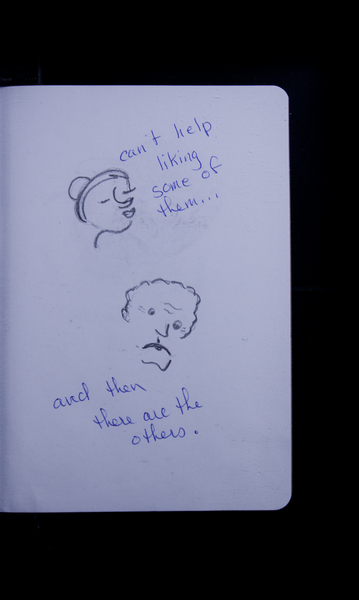 can't help
liking
some of
them...
and then
there are the
others.